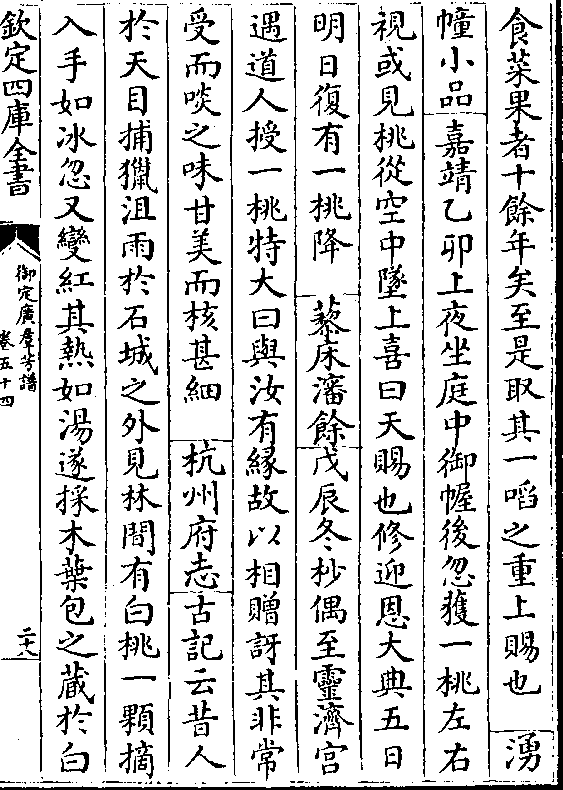 食菜果者十餘年矣至是取其一啗之重上賜也　湧
幢小品嘉靖乙卯上夜坐庭中御幄後忽獲一桃左右
視或見桃從空中墜上喜曰天賜也修迎恩大典五日
明日復有一桃降　蓼床瀋餘戊辰冬杪偶至靈濟宫
遇道人授一桃特大曰與汝有緣故以相贈訝其非常
受而啖之味甘美而核甚細　杭州府志古記云昔人
於天目捕獵沮雨於石城之外見林間有白桃一顆摘
入手如冰忽又變紅其熱如湯遂採木葉包之蔵於白
欽定四庫全書
御定廣羣芳譜
卷五十四
二十八